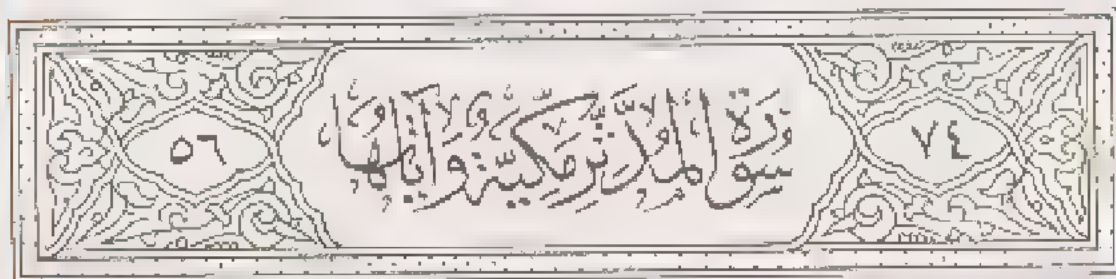 ٧٤
سورة المدثر مكية وآياتها
٥٦